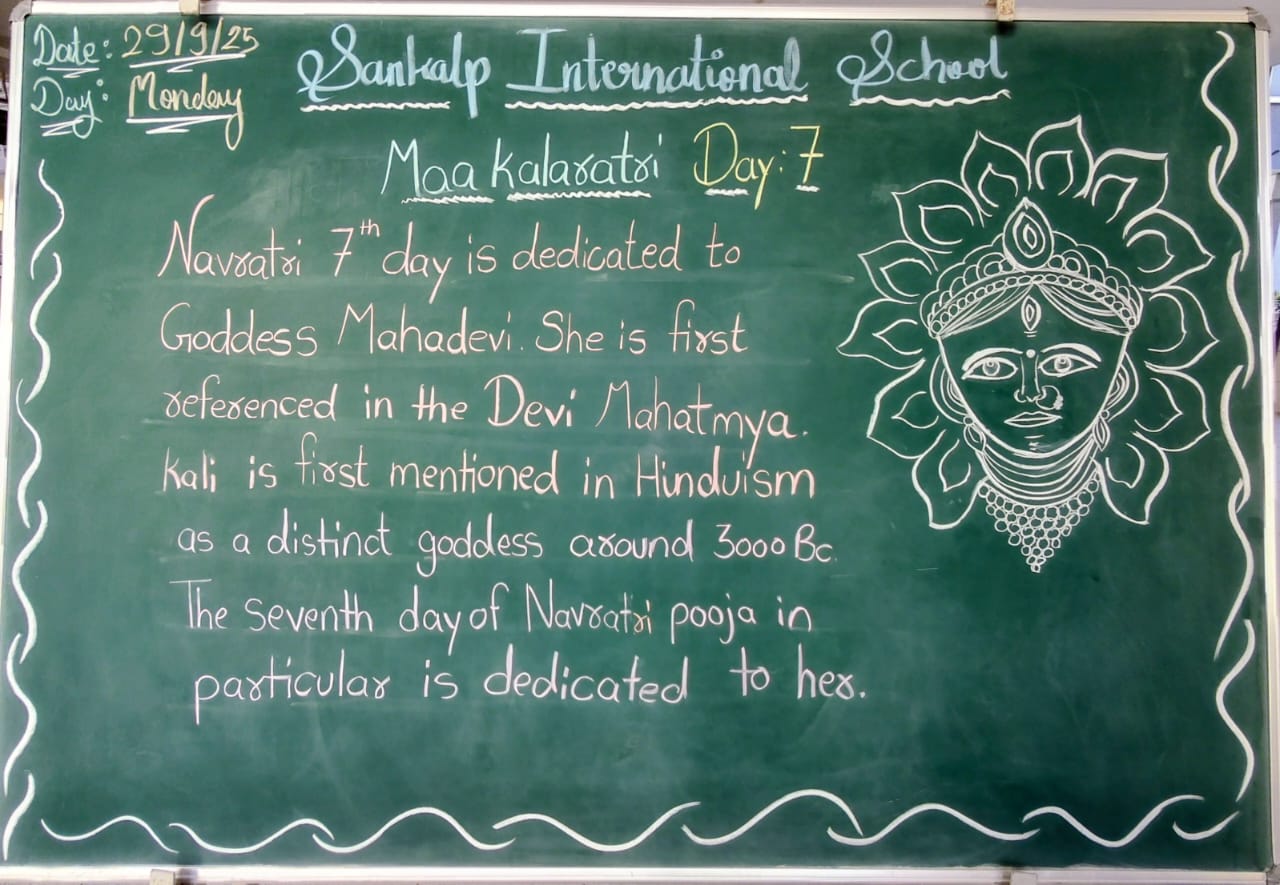 Date: 29/9/25
Day: Monday
Sankalp International School
Maa Kalaratri Day: 7
Navratri 7th day is dedicated to
Goddess Mahadevi. She is first
referenced in the Devi Mahatmya.
Kali is first mentioned in Hinduism
as a distinct goddess around 3000 Bc.
The seventh day of Navratri pooja in
particular is dedicated to her.